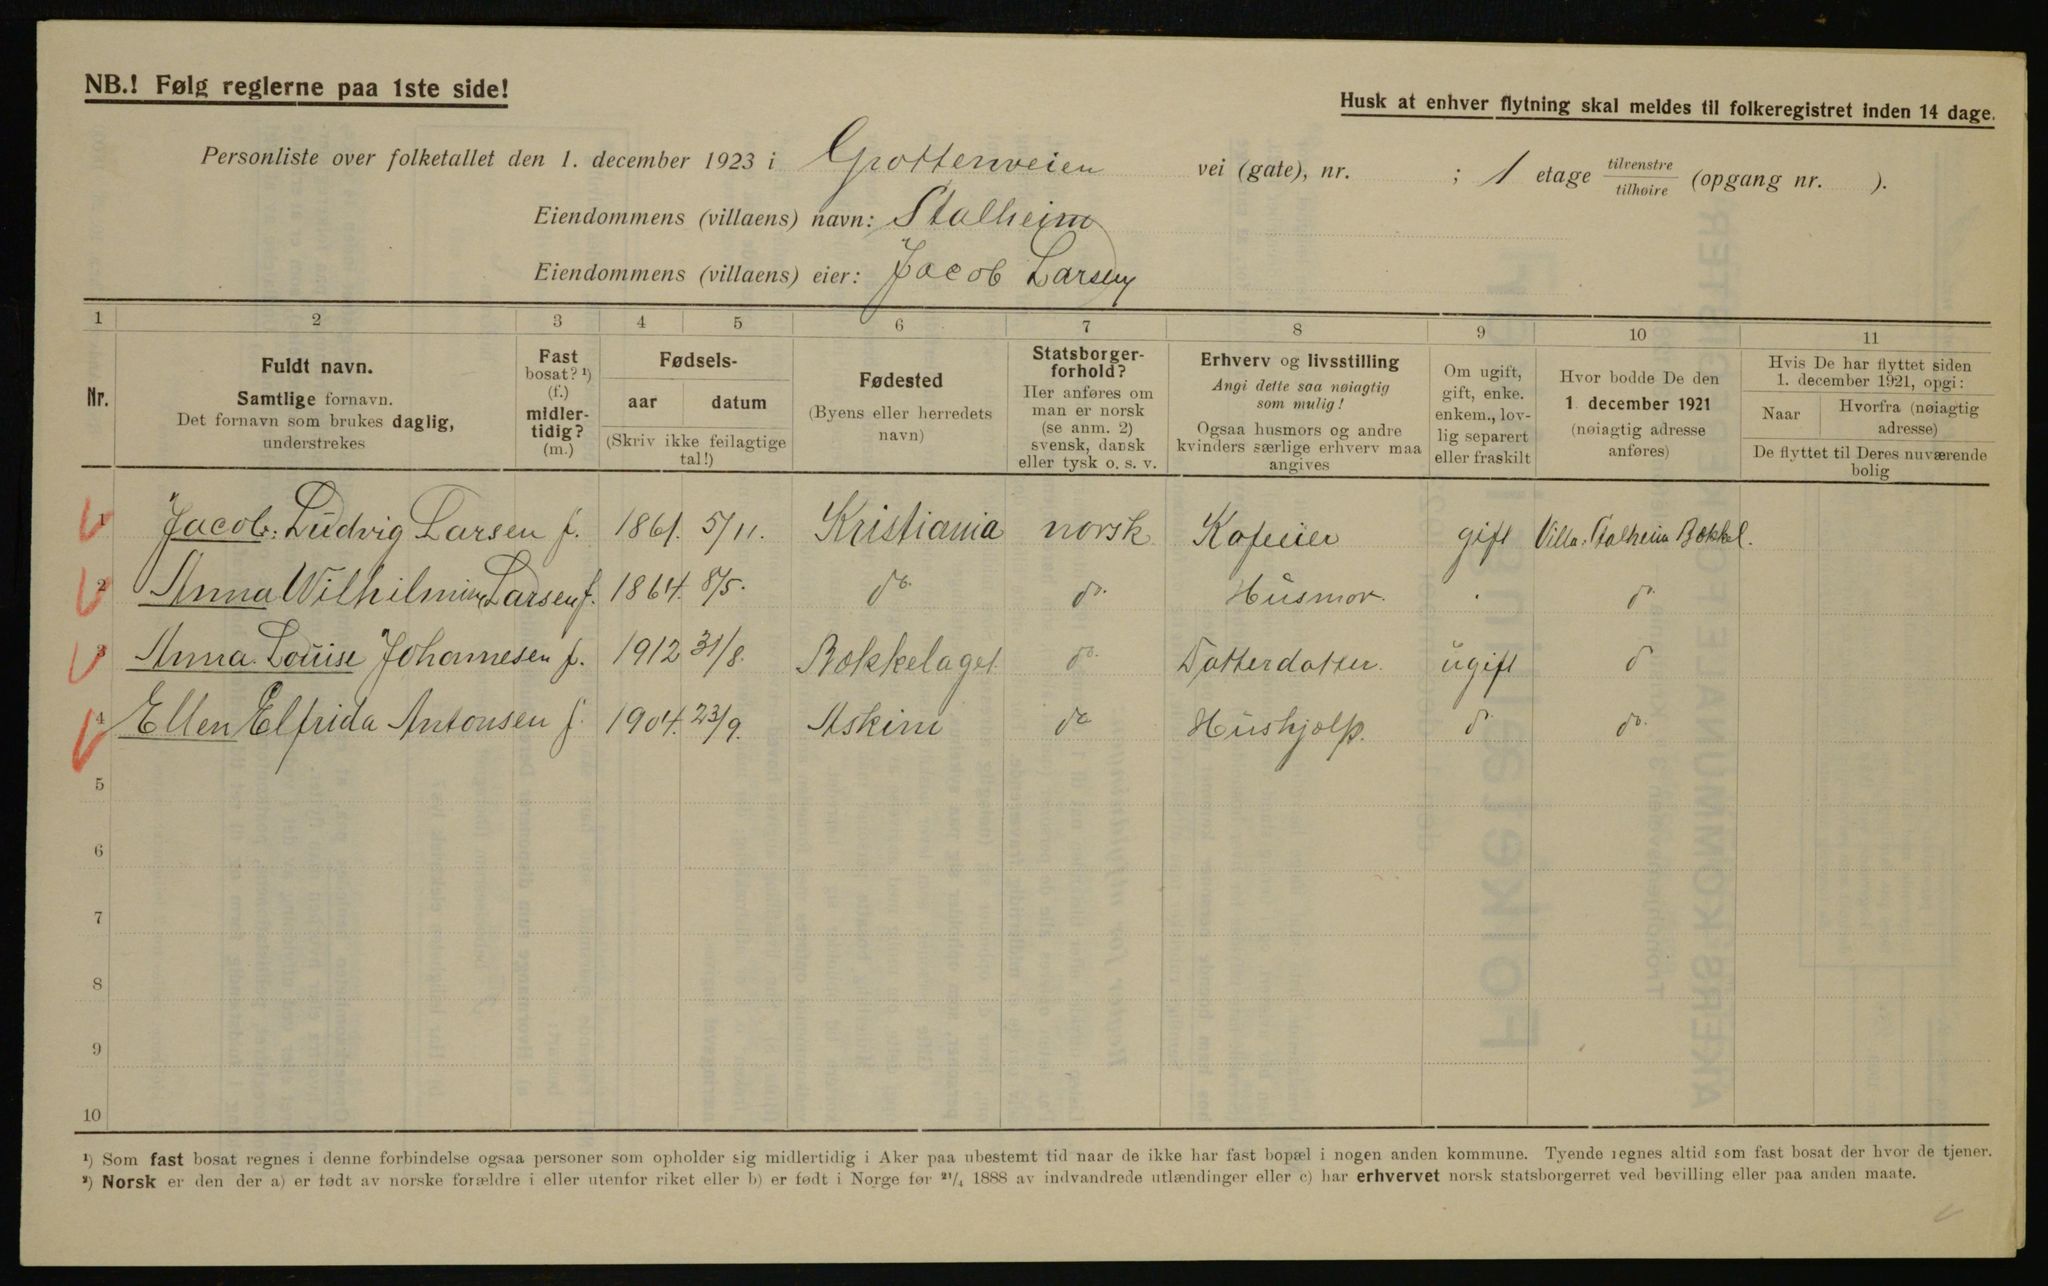 NB.! Følg reglerne paa 1ste side!
Husk at enhver flytning skal meldes til folkeregistret inden 14 dage.
Personliste over folketallet den 1. december 1923 i Grottenveien vei (gate), nr. ; 1 etage tilvenstre/tilhøire (opgang nr. ).
Eiendommens (villaens) navn: Stalheim
Eiendommens (villaens) eier: Jacob Larsen
1 2 3 4 5 6 7 8 9 10 11
Nr.
Fuldt navn.
Samtlige fornavn.
Det fornavn som brukes daglig,
understrekes
Fast
bosat? ¹)
(f.)
midler-
tidig?
(m.)
Fødsels-
aar datum
(Skriv ikke feilagtige
tal!)
Fødested
(Byens eller herredets
navn)
Statsborger-
forhold?
Her anføres om
man er norsk
(se anm. 2)
svensk, dansk
eller tysk o. s. v.
Erhverv og livsstilling
Angi dette saa nøiagtig
som mulig!
Ogsaa husmors og andre
kvinders særlige erhverv maa
angives
Om ugift,
gift, enke.
enkem., lov-
lig separert
eller fraskilt
Hvor bodde De den
1. december 1921
(nøiagtig adresse
anføres)
Hvis De har flyttet siden
1. december 1921, opgi:
Naar Hvorfra (nøiagtig
adresse)
De flyttet til Deres nuværende
bolig
1 Jacob: Ludvig Larsen f. 1861. 5/11. Kristiania norsk gift Villa: Stalheim Bækkel.
2 Anna Wilhilmine Larsen f. 1864. 8/5. do. do. Husmor. do.
3 Anna Louise Johannesen f. 1912 31/8. Bækkelaget do. Datterdatter. ugift d
4 Ellen Elfrida Antonsen f. 1904. 23/9. Askim do Hushjælp. d. do.
5
6
7
8
9
10
¹) Som fast bosat regnes i denne forbindelse ogsaa personer som opholder sig midlertidig i Aker paa ubestemt tid naar de ikke har fast bopæl i nogen anden kommune. Tyende regnes altid som fast bosat der hvor de tjener.
²) Norsk er den der a) er født av norske forældre i eller utenfor riket eller b) er født i Norge før 21/4 1888 av indvandrede utlændinger eller c) har erhvervet norsk statsborgerret ved bevilling eller paa anden maate.